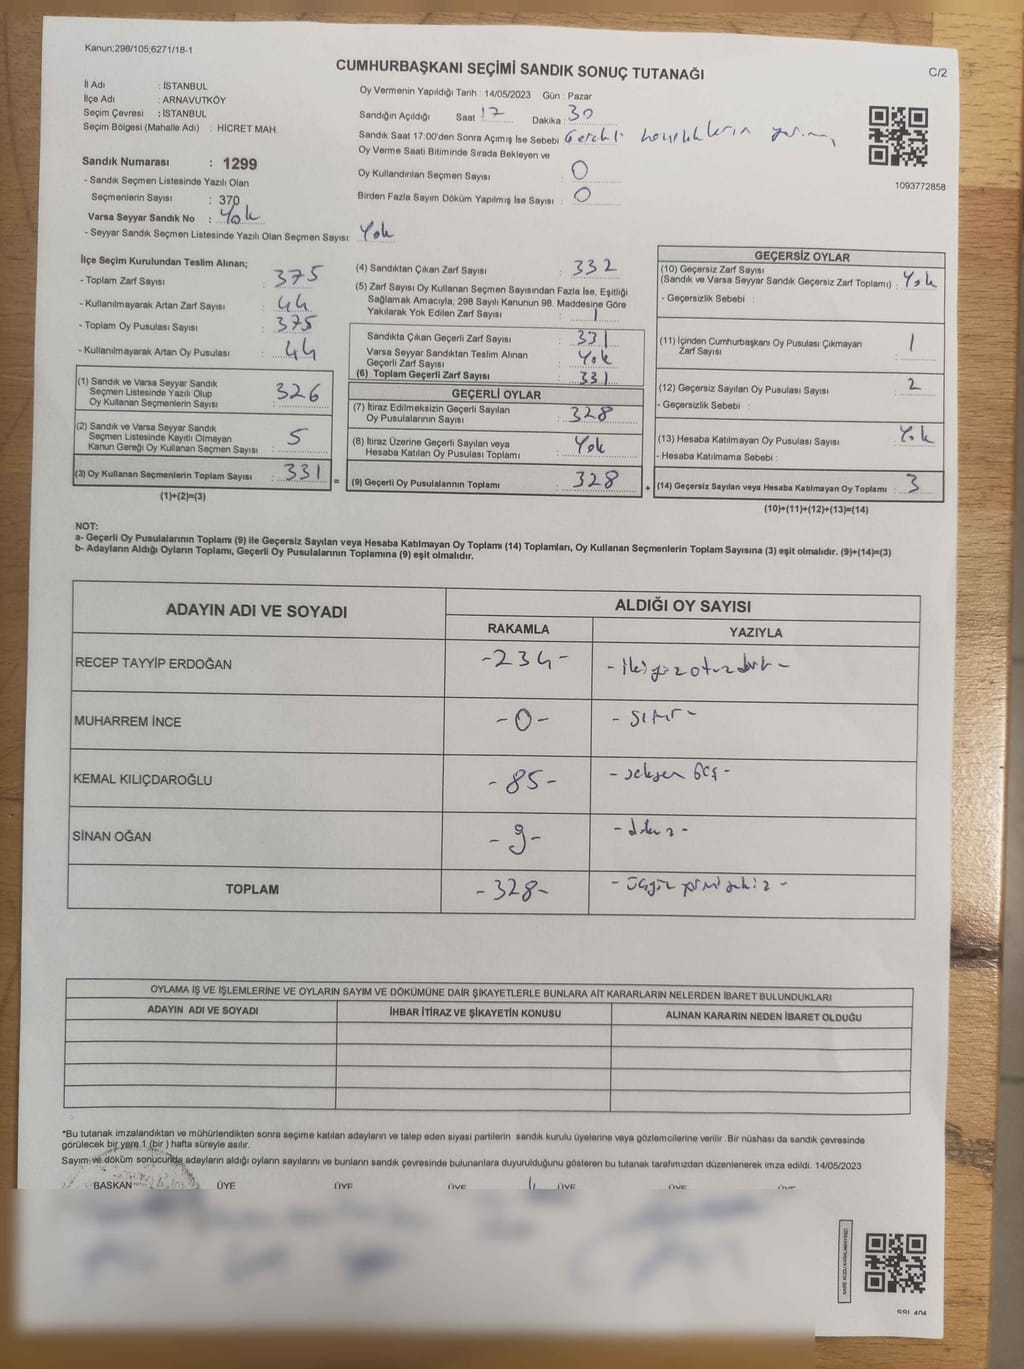 Kanun;298/105;6271/18-1
C/2
CUMHURBAŞKANI SEÇİMİ SANDIK SONUÇ TUTANAĞI
İl Adı : İSTANBUL
İlçe Adı : ARNAVUTKÖY
Seçim Çevresi : İSTANBUL
Seçim Bölgesi (Mahalle Adı) : HİCRET MAH.
Oy Vermenin Yapıldığı Tarih : 14/05/2023 Gün : Pazar
Sandığın Açıldığı Saat 17 Dakika 30
Sandık Saat 17:00'den Sonra Açımış İse Sebebi Gerekli hazırlıkların
Oy Verme Saati Bitiminde Sırada Bekleyen ve
Oy Kullandırılan Seçmen Sayısı : 0
Birden Fazla Sayım Döküm Yapılmış İse Sayısı : 0
1093772858
Sandık Numarası : 1299
- Sandık Seçmen Listesinde Yazılı Olan
Seçmenlerin Sayısı : 370
Varsa Seyyar Sandık No : Yok
- Seyyar Sandık Seçmen Listesinde Yazılı Olan Seçmen Sayısı: Yok
İlçe Seçim Kurulundan Teslim Alınan;
- Toplam Zarf Sayısı : 375
- Kullanılmayarak Artan Zarf Sayısı : 44
- Toplam Oy Pusulası Sayısı : 375
- Kullanılmayarak Artan Oy Pusulası : 44
(1) Sandık ve Varsa Seyyar Sandık
Seçmen Listesinde Yazılı Olup
Oy Kullanan Seçmenlerin Sayısı : 326
(2) Sandık ve Varsa Seyyar Sandık
Seçmen Listesinde Kayıtlı Olmayan
Kanun Gereği Oy Kullanan Seçmen Sayısı : 5
(3) Oy Kullanan Seçmenlerin Toplam Sayısı : 331
(1)+(2)=(3)
=
(4) Sandıktan Çıkan Zarf Sayısı : 332
(5) Zarf Sayısı Oy Kullanan Seçmen Sayısından Fazla İse, Eşitliği
Sağlamak Amacıyla; 298 Sayılı Kanunun 98. Maddesine Göre
Yakılarak Yok Edilen Zarf Sayısı : 1
Sandıkta Çıkan Geçerli Zarf Sayısı : 331
Varsa Seyyar Sandıktan Teslim Alınan
Geçerli Zarf Sayısı : Yok
(6) Toplam Geçerli Zarf Sayısı : 331
GEÇERLİ OYLAR
(7) İtiraz Edilmeksizin Geçerli Sayılan
Oy Pusulalarının Sayısı : 328
(8) İtiraz Üzerine Geçerli Sayılan veya
Hesaba Katılan Oy Pusulası Toplamı : Yok
(9) Geçerli Oy Pusulalarının Toplamı : 328
+
GEÇERSİZ OYLAR
(10) Geçersiz Zarf Sayısı
(Sandık ve Varsa Seyyar Sandık Geçersiz Zarf Toplamı) : Yok
- Geçersizlik Sebebi :
(11) İçinden Cumhurbaşkanı Oy Pusulası Çıkmayan
Zarf Sayısı : 1
(12) Geçersiz Sayılan Oy Pusulası Sayısı : 2
- Geçersizlik Sebebi :
(13) Hesaba Katılmayan Oy Pusulası Sayısı : Yok
- Hesaba Katılmama Sebebi :
(14) Geçersiz Sayılan veya Hesaba Katılmayan Oy Toplamı : 3
(10)+(11)+(12)+(13)=(14)
NOT:
a- Geçerli Oy Pusulalarının Toplamı (9) ile Geçersiz Sayılan veya Hesaba Katılmayan Oy Toplamı (14) Toplamları, Oy Kullanan Seçmenlerin Toplam Sayısına (3) eşit olmalıdır. (9)+(14)=(3)
b- Adayların Aldığı Oyların Toplamı, Geçerli Oy Pusulalarının Toplamına (9) eşit olmalıdır.
ADAYIN ADI VE SOYADI
ALDIĞI OY SAYISI
RAKAMLA YAZIYLA
RECEP TAYYİP ERDOĞAN -234- -ikiyüzotuzdört-
MUHARREM İNCE -0- -sıfır-
KEMAL KILIÇDAROĞLU -85- -seksen beş-
SİNAN OĞAN -9- -dokuz-
TOPLAM -328- -üçyüz yirmi sekiz-
OYLAMA İŞ VE İŞLEMLERİNE VE OYLARIN SAYIM VE DÖKÜMÜNE DAİR ŞİKAYETLERLE BUNLARA AİT KARARLARIN NELERDEN İBARET BULUNDUKLARI
ADAYIN ADI VE SOYADI İHBAR İTİRAZ VE ŞİKAYETİN KONUSU ALINAN KARARIN NEDEN İBARET OLDUĞU
*Bu tutanak imzalandıktan ve mühürlendikten sonra seçime katılan adayların ve talep eden siyasi partilerin sandık kurulu üyelerine veya gözlemcilerine verilir .Bir nüshası da sandık çevresinde
görülecek bir yere 1 (bir ) hafta süreyle asılır.
Sayım ve döküm sonucunda adayların aldığı oyların sayılarını ve bunların sandık çevresinde bulunanlara duyurulduğunu gösteren bu tutanak tarafımızdan düzenlenerek imza edildi. 14/05/2023
BAŞKAN ÜYE ÜYE ÜYE ÜYE ÜYE ÜYE